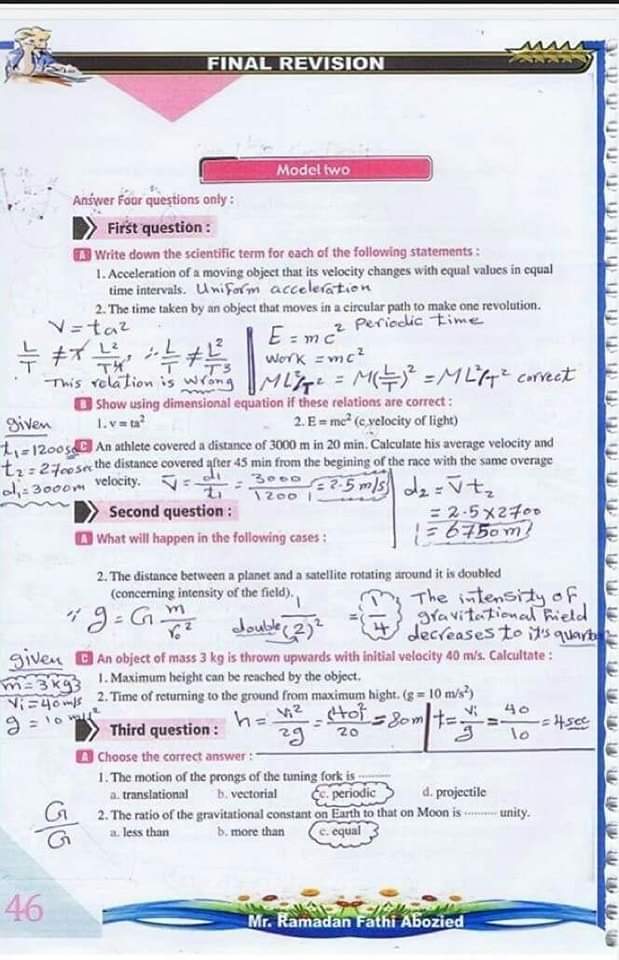 FINAL REVISION
Model two
Answer Four questions only :
First question :
A Write down the scientific term for each of the following statements :
1. Acceleration of a moving object that its velocity changes with equal values in equal
time intervals. Uniform acceleration
2. The time taken by an object that moves in a circular path to make one revolution.
Periodic time
V = ta²
L/T ≠ T L²/T⁴, ∴ L/T ≠ L²/T³
This relation is wrong
E = mc²
work = mc²
ML²/T² = M(L/T)² = ML²/T² correct
B Show using dimensional equation if these relations are correct :
1. v = ta² 2. E = mc² (c velocity of light)
given
t₁ = 1200 sec
t₂ = 2700 sec
d₁ = 3000 m
C An athlete covered a distance of 3000 m in 20 min. Calculate his average velocity and
the distance covered after 45 min from the begining of the race with the same overage
velocity. V̄ = d₁/t₁ = 3000/1200 = 2.5 m/s
d₂ = V̄ t₂
= 2.5 × 2700
= 6750 m
Second question :
A What will happen in the following cases :
2. The distance between a planet and a satellite rotating around it is doubled
(concerning intensity of the field).
∵ g = G m/r₀² double 1/(2)² = 1/4
The intensity of
gravitational field
decreases to it's quarter
given
m = 3 kg
vi = 40 m/s
g = 10 m/s²
C An object of mass 3 kg is thrown upwards with initial velocity 40 m/s. Calcultate :
1. Maximum height can be reached by the object.
2. Time of returning to the ground from maximum hight. (g = 10 m/s²)
h = vi²/2g = (40)²/20 = 80m t = vi/g = 40/10 = 4 sec
Third question :
A Choose the correct answer :
1. The motion of the prongs of the tuning fork is ..........
a. translational b. vectorial c. periodic d. projectile
G/G
2. The ratio of the gravitational constant on Earth to that on Moon is ......... unity.
a. less than b. more than c. equal
46
Mr. Ramadan Fathi Abozied